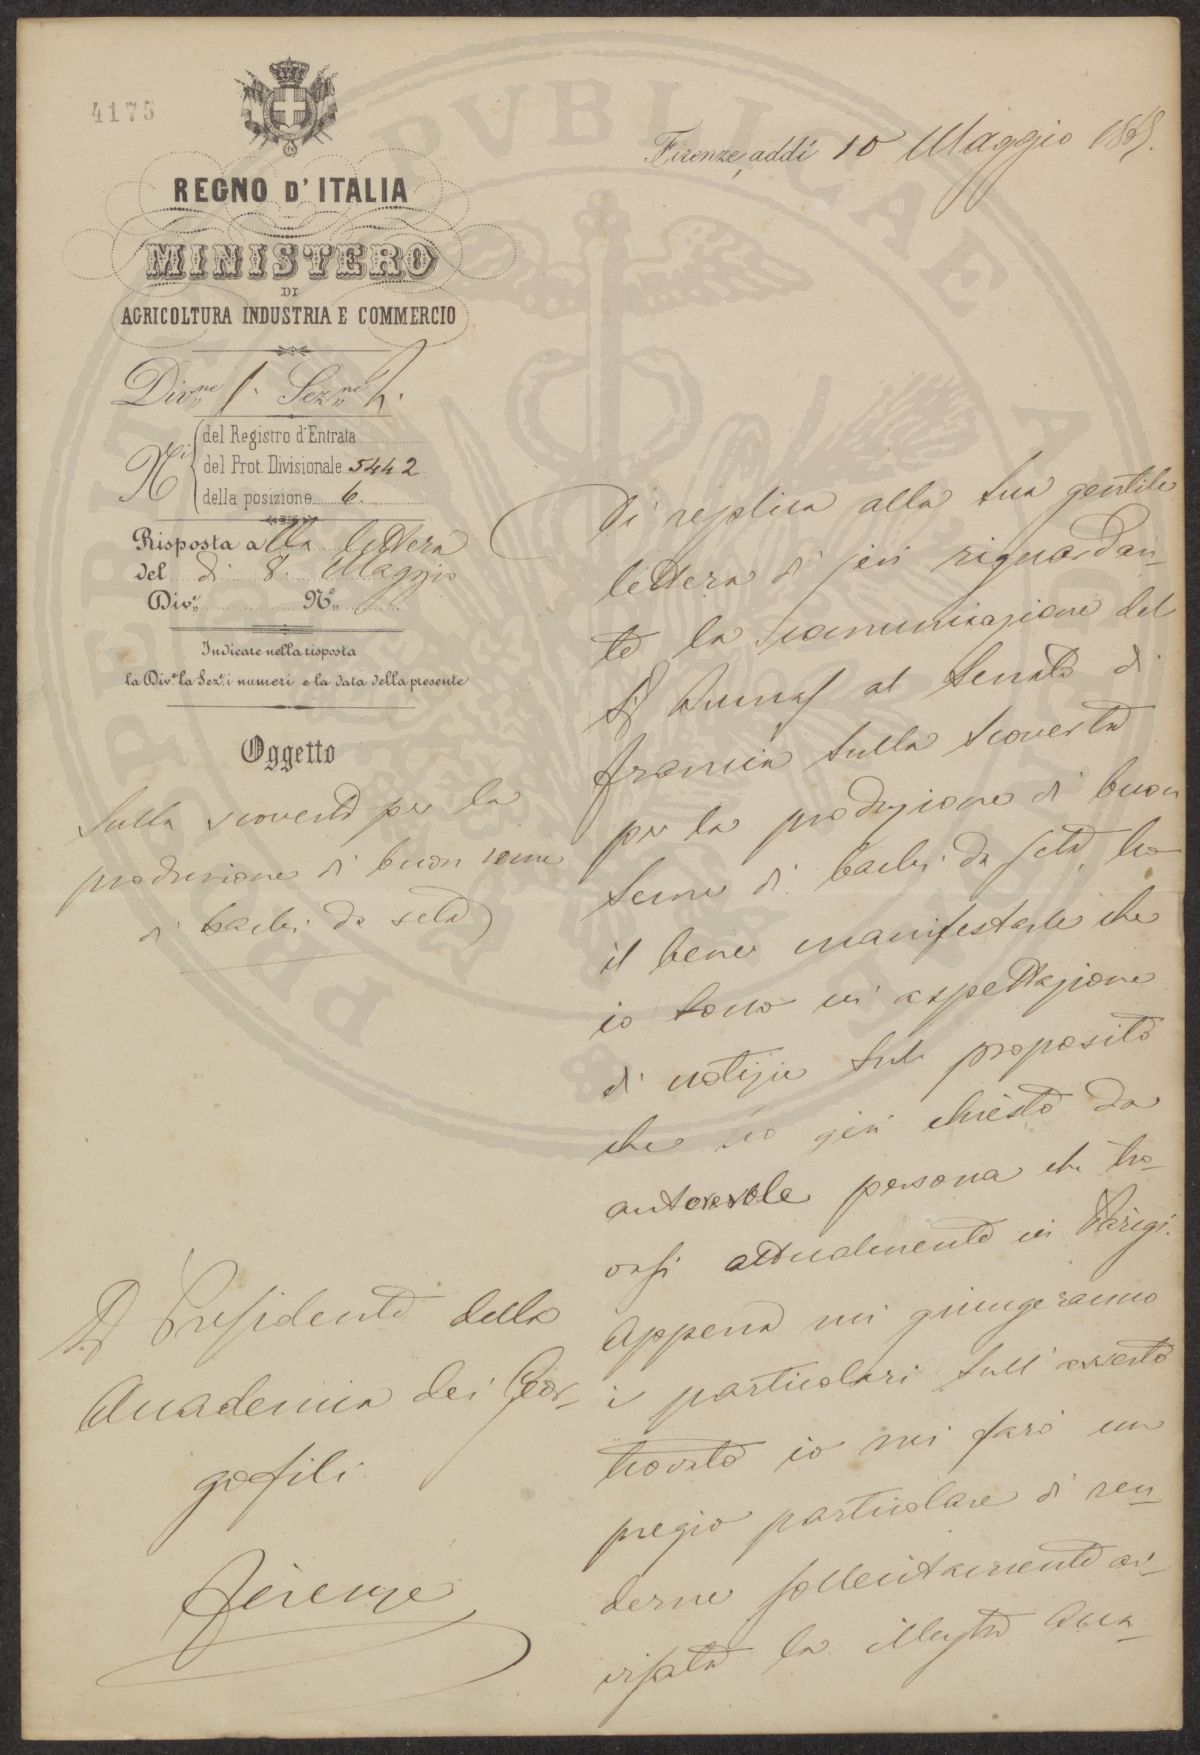 4175
REGNO D'ITALIA
MINISTERO
DI
AGRICOLTURA INDUSTRIA E COMMERCIO
Div.ne 1. Sez.ne 2.
N.i
del Registro d'Entrata
del Prot. Divisionale 5442
della posizione 6.
Risposta alla lettera
del dì 8. Maggio
Div.e N.o
Indicare nella risposta
la Div.e la Sez.e i numeri e la data della presente
Oggetto
Sulla scoverta per la
produzione di buon seme
di bachi da seta
Al Presidente della
Accademia dei Geor-
gofili
Firenze
Firenze, addì 10 Maggio 186
PROPERITATI PVBLICAE AVGENDAE
Di replica alla sua gentile
lettera di jeri riguardan-
te la comunicazione del
Sig. Dumas al Senato di
Francia sulla scoverta
per la produzione di buon
seme di bachi da seta, ho
il bene manifestarle che
io sono in aspettazione
di notizie sul proposito
che ho già chiesto da
autorevole persona che tro-
vasi attualmente in Parigi.
Appena mi giungeranno
i particolari sull'asserto
trovato io mi farò un
pregio particolare di ren-
derne sollecitamente av-
visata la illustre Acca-